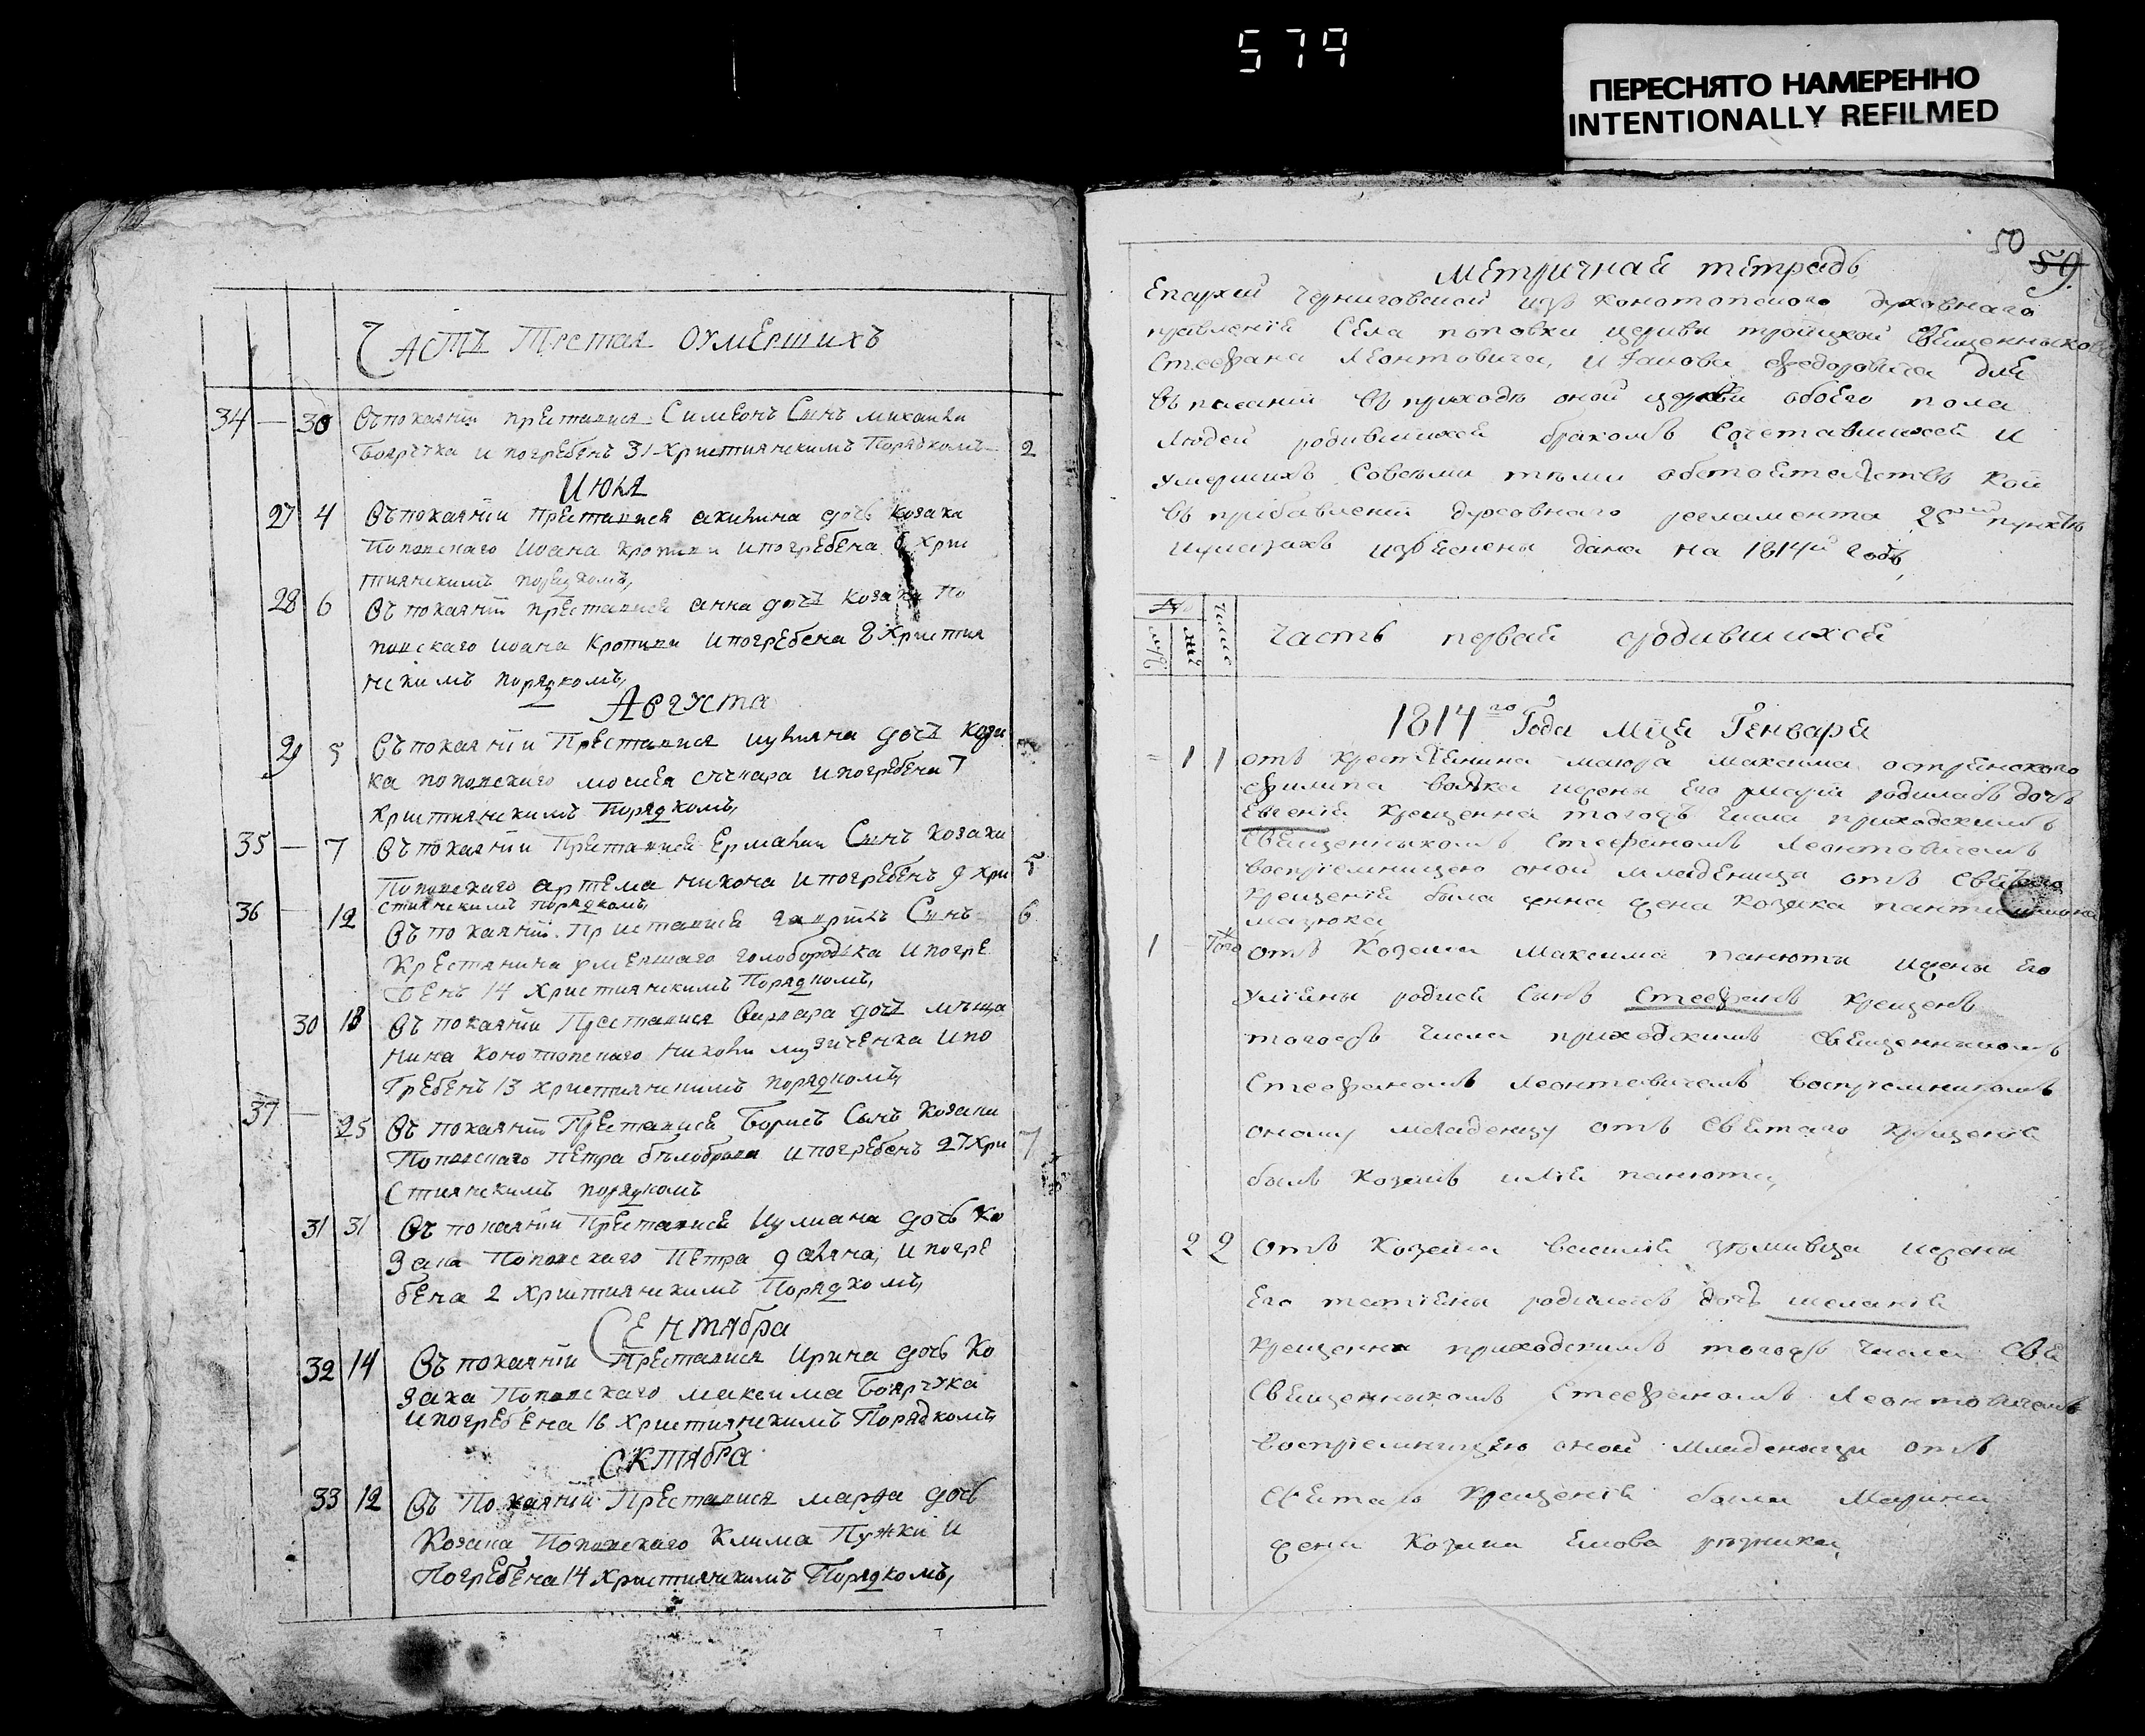 579
ПЕРЕСНЯТО НАМЕРЕННО
INTENTIONALLY REFILMED
Часть Третая оумершихъ
34 — 30 Въ покаянiи престависа Симеонъ Сынъ михаила
Боярчука и погребенъ 31 християнскимъ Порядкомъ 2
Июля
27 4 Въ покаянiи преставися акилина дочь козака
Поповскаго Иоана кропивы и погребена 6 хри
тиянскимъ порядкомъ,
28 6 Въ покаянiи преставися анна дочь козака По
повскаго иоана Кропивы и погребена 8 христия
нскимъ порядкомъ,
Августа
29 5 Въ покаянiи Преставися иулияна дочь коза
ка поповскаго моисея и погребена 7
християнскимъ Порядкомъ,
35 — 7 Въ покаянiи Преставися Сынъ козака
Поповскаго артема никона и погребенъ 9 хри 5
стиянскимъ порядкомъ,
36 — 12 Въ покаянiи Преставися гаврiилъ Сынъ 6
Крестянина умершаго голобородка и погре
бенъ 14 християнскимъ Порядкомъ,
30 18 Въ покаянiи Преставися Варвара дочь мѣща
нина конотопскаго музиченка и по
гребенъ 13 християнскимъ порядкомъ,
37 — 25 Въ покаянiи Преставися Борисъ Сынъ козака
Поповскаго Петра бѣлоброва и погребенъ 27 хри 7
стиянскимъ порядкомъ
31 31 Въ покаянiи Преставися Иулиана дочь ко
зака Поповскаго Петра и погре
бена 2 християнскимъ Порядкомъ,
Сентября
32 14 Въ покаянiи Преставися Ирина дочь ко
зака Поповскаго максима Боярчука
и погребена 16 християнскимъ Порядкомъ,
Октября
33 12 Въ Покаянiи Преставися марфа дочь
козака Поповскаго Клима Пужки и
Погребена 14 християнскимъ Порядкомъ,
50 59
Метричная тетрадь
Епархiи Черниговской изъ Конотопского духовнаго
правленiя Села поповки церкви троицкой Священникова
Стефана Леонтовича, и Iакова Федоровича для
въписанiй въ приходѣ оной церкви обоего пола
людей родившихся бракомъ Сочетавшихся и
умершихъ Совсѣми тѣми обстоятелствъ кои
въ прибавленiи духовнаго регламента 25 пунктѣ
изяснены дана на 1814й годъ,
Число
Часть первая ородившихся
1814го Года Мца Генваря
1 1 отъ крестянина маюра максима острянского
филипа вовка и жены Его марiи родилась дочь
Евгенiя крещенна тогожъ числа приходскимъ
Священникомъ Стефаномъ Леонтовичемъ
воспрiемницею оной младеница отъ Святаго
Крещенiя была анна жена козака пантилимона
мазюка,
1 Того отъ Козака Максима панюты и жены Его
улiяны родися Сынъ Стефанъ крещенъ
тогожъ числа приходскимъ Священникомъ
Стефаномъ Леонтовичемъ воспрiемникомъ
оному младенцу отъ Святаго крещенiя
былъ Козакъ илiя панюта,
2 2 отъ Козака василiя и жены
Его татiяны родилась дочь меланiя
крещенна приходскимъ тогожъ числа Свя
Священникомъ Стефаномъ Леонтовичемъ
воспрiемницею оной младеници отъ
Святаго Крещенiя была Марина
жена Козака Якова рѣзника,